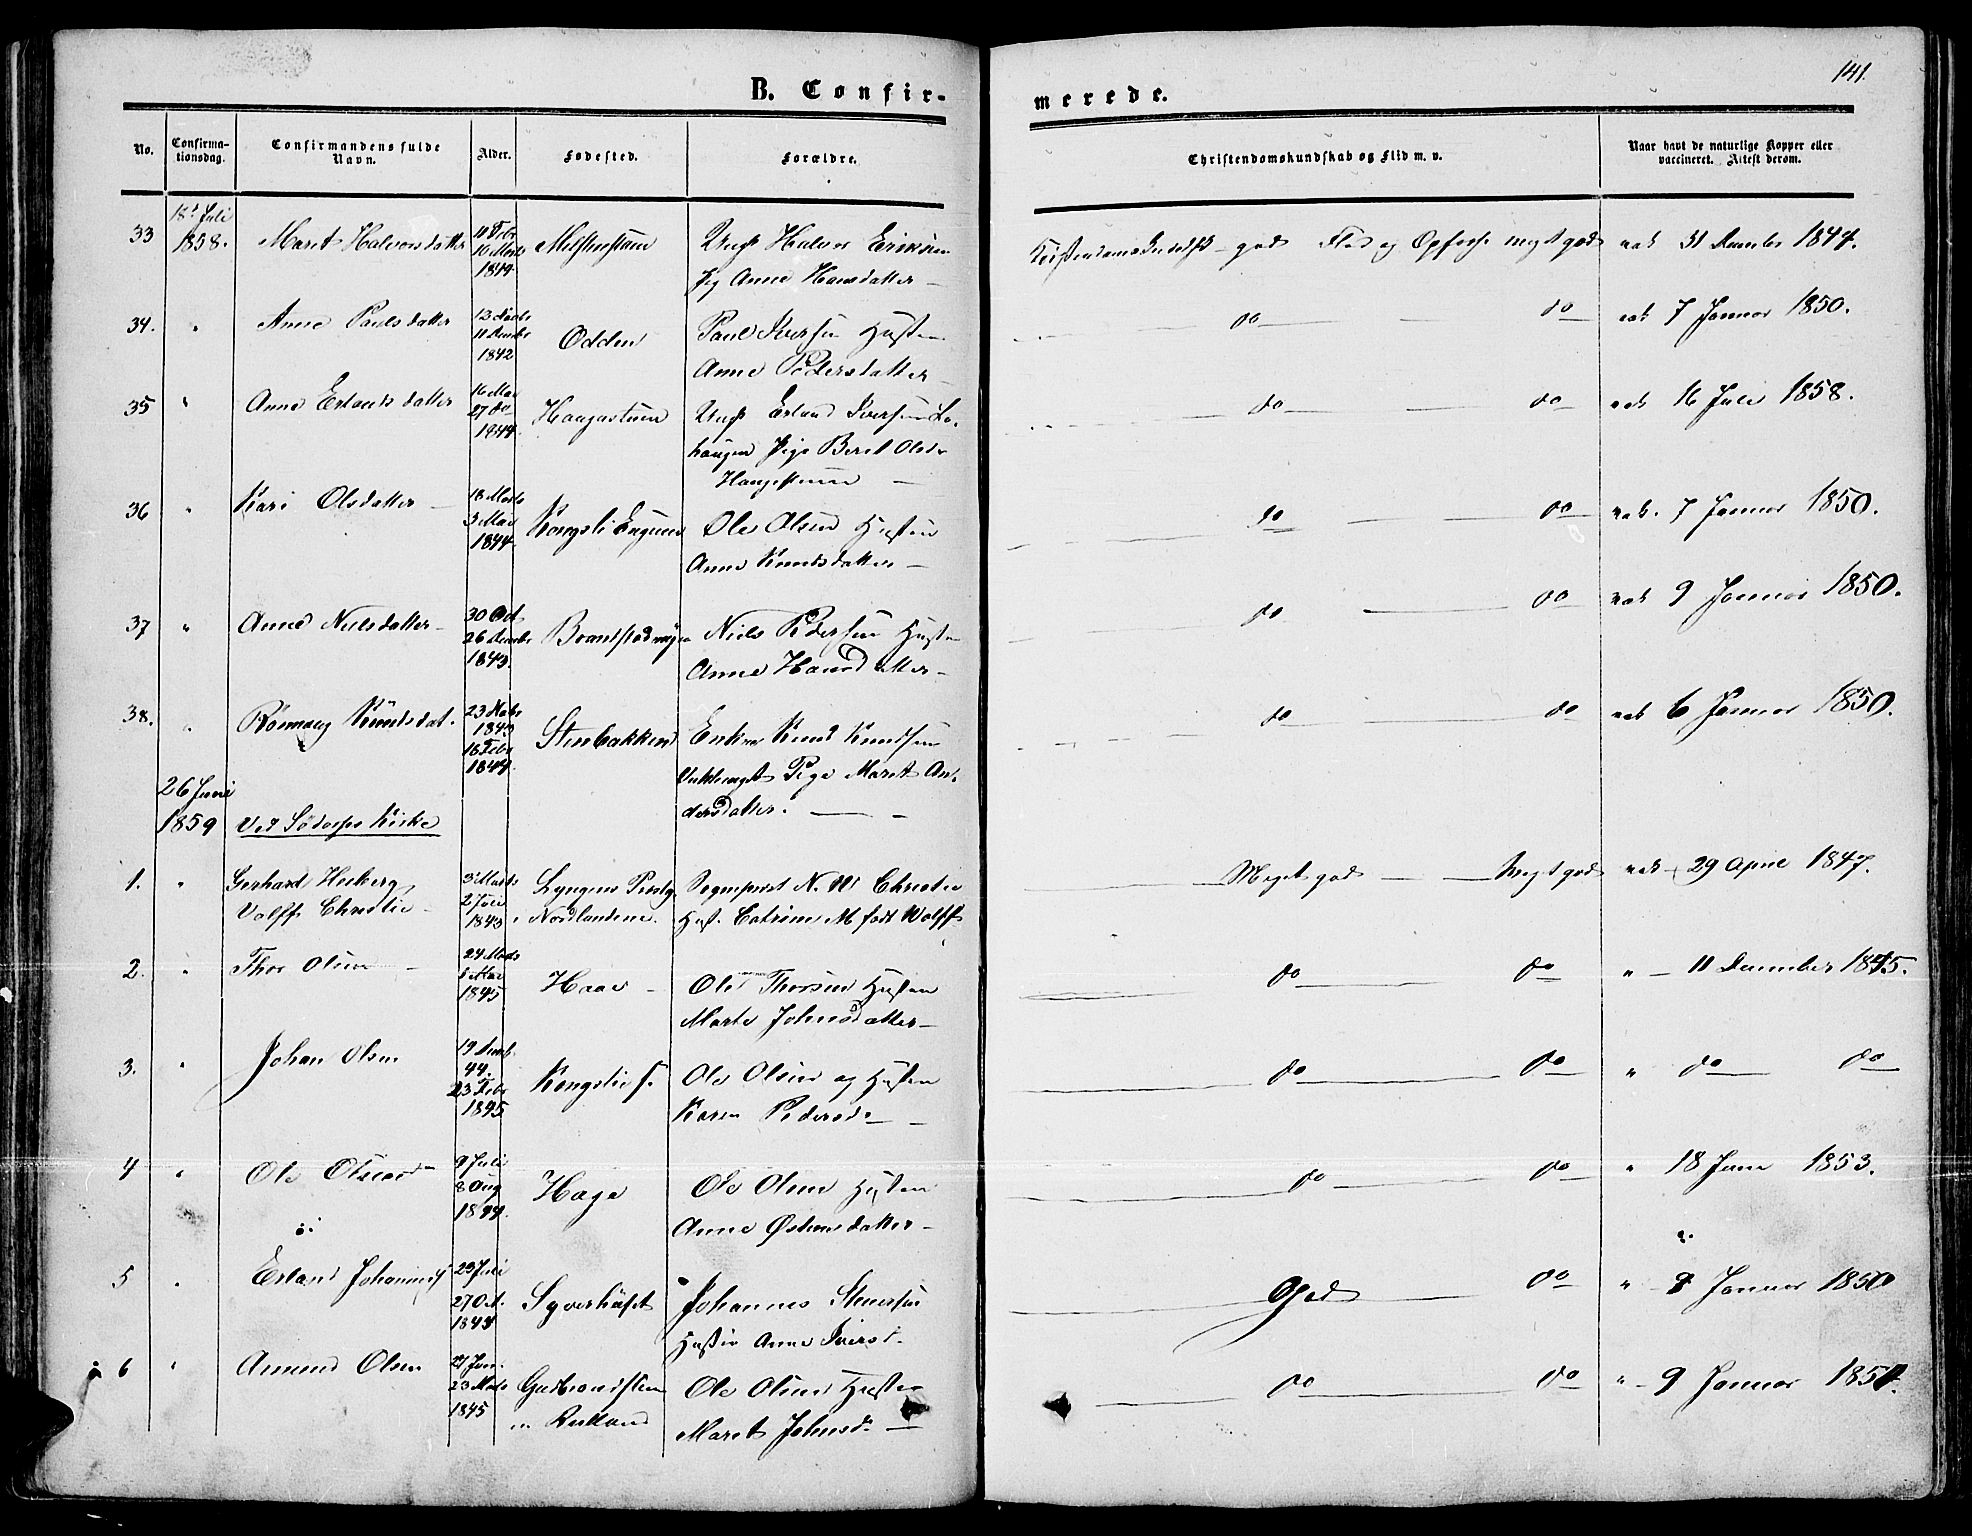 141.
B. Confirmerede.
No.
Confirmationsdag.
Confirmandens fulde Navn.
Alder.
Fødested.
Forældre.
Christendomskundskab og Flid m. v.
Naar havt de naturlige Kopper eller vaccineret. Attest derom.
33 18d Juli 1858. Maret Halvorsdatter 1844 Ungk Halvor Eriksen
Pig Anne Hansdatter – god Flid og Opførse megt god vak 31 Decembr 1844.
34. " Anne Paulsdatter 1842 Odden Paul Iversen Hustru
Anne Pedersdatter – do – do vak 7 Januar 1850.
35 " Anne Erlandsdatter 16 Mai 27 do 1844 Haugastuen Ungk Erland Iversen Lo-
haugen Pige Berit Olsdr
Haugestuen – do – do vak 16 Juli 1858.
36 " Kari Olsdatter – 18 Marts 3 Mai 1844 Kongsli Engum Ole Olsen Hustru
Anne Knudsdatter – do – do vak. 7 Januar 1850.
37 " Anne Nielsdatter – 30 Oct 26 Decembr 1843. Niels Pedersen Hustru
Anne Hansdatter – do – do vak 9 Januar 1850.
38. " Rönnaug Knudsdat. 1843 16 Febr 1844. Stenbakken Enkem Knud Knudsen
Pige Maret An-
dersdatter. – do – do vak 6 Januar 1850.
26 Juni 1859 Ved Sødorps Kirke
1. " Gerhard Heiberg
Volff Christie – 3 Marts 1843 Lyngens Prstg
Nordlandene. Sognepræst N. W Christie
Hust. Catrine M født Wolff Meget god – Megt god vak – 29 April 1847.
2. " Thor Olsen – 24 Marts 1845 Haave – Ole Thorsen Hustru
Marte Johnsdatter – do – do " – 11 December 1845.
3. " Johan Olsen 19 Decb. 44. 23 Febr 1845 Kongslie Ole Olsen og Hustru
Karen Pedersd – do – do " do – do
4 " Ole Olsen 9 Juli 8 Aug 1844. Hage Ole Olsen Hustru
Anne Østensdatter – do – do " 18 Juni 1853.
5 " Erland Johannes 27 Oct. 1844 Syverhuset Johannes Steuersen
Hustru Anne Iversd. God do " 8 Januar 1850
6 " Amund Olsen 23 Marts 1845 Gudbrandstuen
Ole Olsen Hustru
Maret Johnsd – do – do " – 9 Januar 1851.